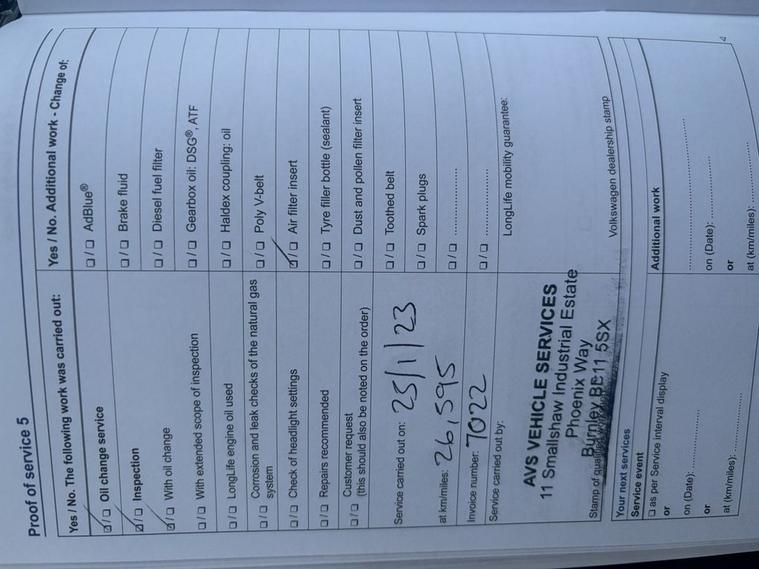 Proof of service 5
Yes / No. The following work was carried out:
Oil change service
Inspection
With oil change
With extended scope of inspection
LongLife engine oil used
Corrosion and leak checks of the natural gas
system
Check of headlight settings
Repairs recommended
Customer request
(this should also be noted on the order)
Service carried out on: 25/1/23
at km/miles: 26,595
Invoice number: 7022
Service carried out by:
AVS VEHICLE SERVICES
11 Smallshaw Industrial Estate
Phoenix Way
Burnley BB11 5SX
Stamp of
Yes / No. Additional work - Change of:
AdBlue®
Brake fluid
Diesel fuel filter
Gearbox oil: DSG®, ATF
Haldex coupling: oil
Poly V-belt
Air filter insert
Tyre filler bottle (sealant)
Dust and pollen filter insert
Toothed belt
Spark plugs
LongLife mobility guarantee:
Volkswagen dealership stamp
Your next services
Service event
as per Service interval display
or
on (Date):
or
at (km/miles):
Additional work
on (Date):
or
at (km/miles):
4